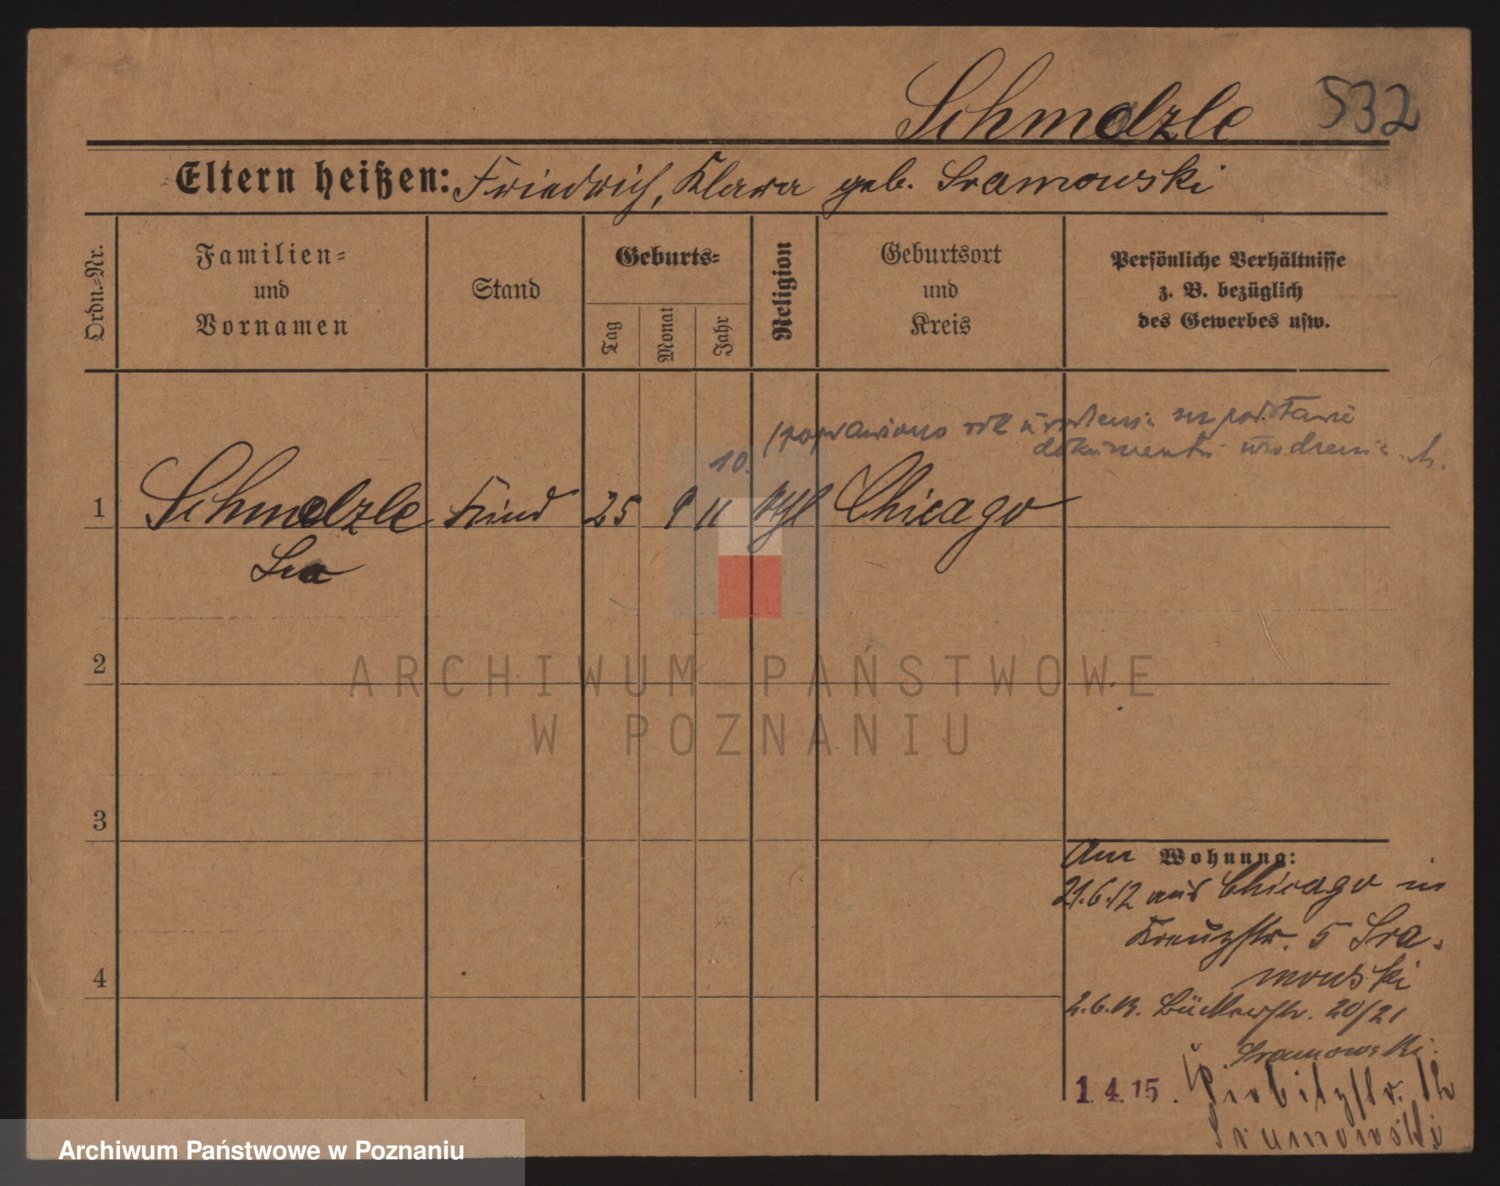 Schmelzle 532
Eltern heißen: Friedrich, Klara geb. Sramowski
Ordn.-Nr.
Familien=
und
Vornamen
Stand
Geburts=
Tag
Monat
Jahr
Religion
Geburtsort
und
Kreis
Persönliche Verhältnisse
z. B. bezüglich
des Gewerbes usw.
(poprawiono rok urodzenia na podstawie
dokumentu urodzenia
10.
1 Schmelzle Kind 25 9 11 Chicago
2
3
4
Am Wohnung:
21.6.12 aus Chicago in
Kreuzstr. 5 Sra-
mowski
2.6.13. Büttelstr. 20/21
Sramowski
1.4.15.
Sramowski
ARCHIWUM PAŃSTWOWE
W POZNANIU
Archiwum Państwowe w Poznaniu